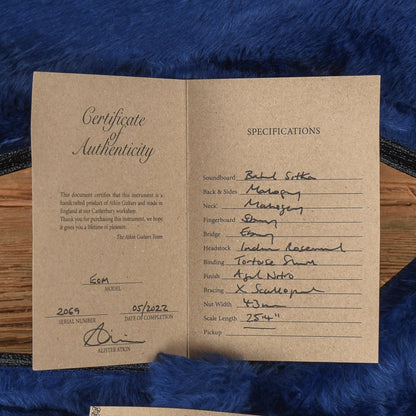 Certificate
of
Authenticity
This document certifies that this instrument is a
handcrafted product of Atkin Guitars and made in
England at our Canterbury workshop.
Thank you for purchasing this instrument, we hope
it gives you a lifetime of pleasure.
The Atkin Guitars Team
GOM
MODEL
2069 05/2022
SERIAL NUMBER DATE OF COMPLETION
ALISTER ATKIN
SPECIFICATIONS
Soundboard Baked Sitka
Back & Sides Mahogany
Neck Mahogany
Fingerboard Ebony
Bridge Ebony
Headstock Indian Rosewood
Binding Tortoise
Finish Aged Nitro
Bracing X Scalloped
Nut Width 43mm
Scale Length 25.4"
Pickup